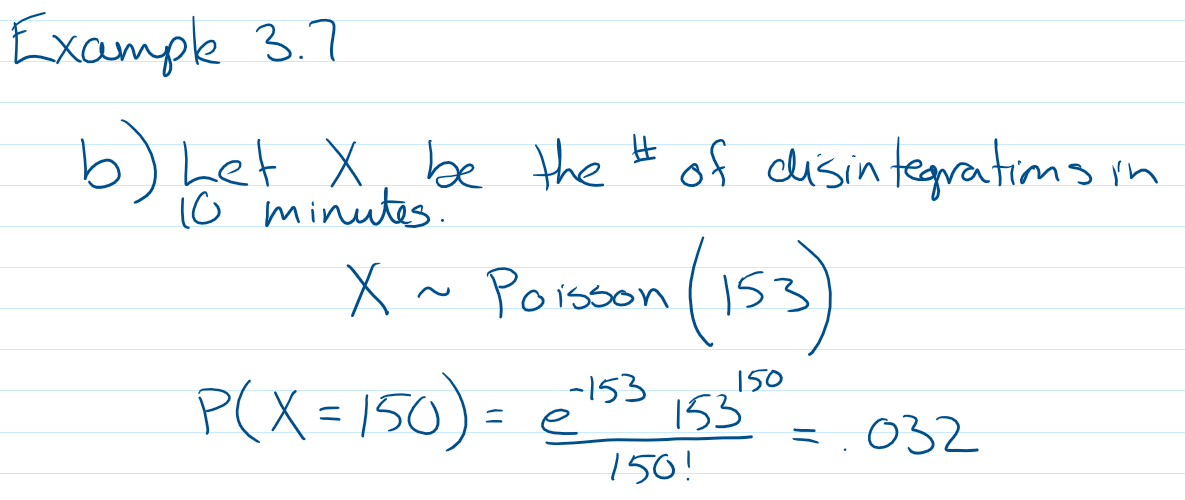 Example 3.7
b) Let X be the # of disintegrations in
10 minutes.
X ~ Poisson (153)
P(X = 150) = e^-153 153^150 / 150! = .032